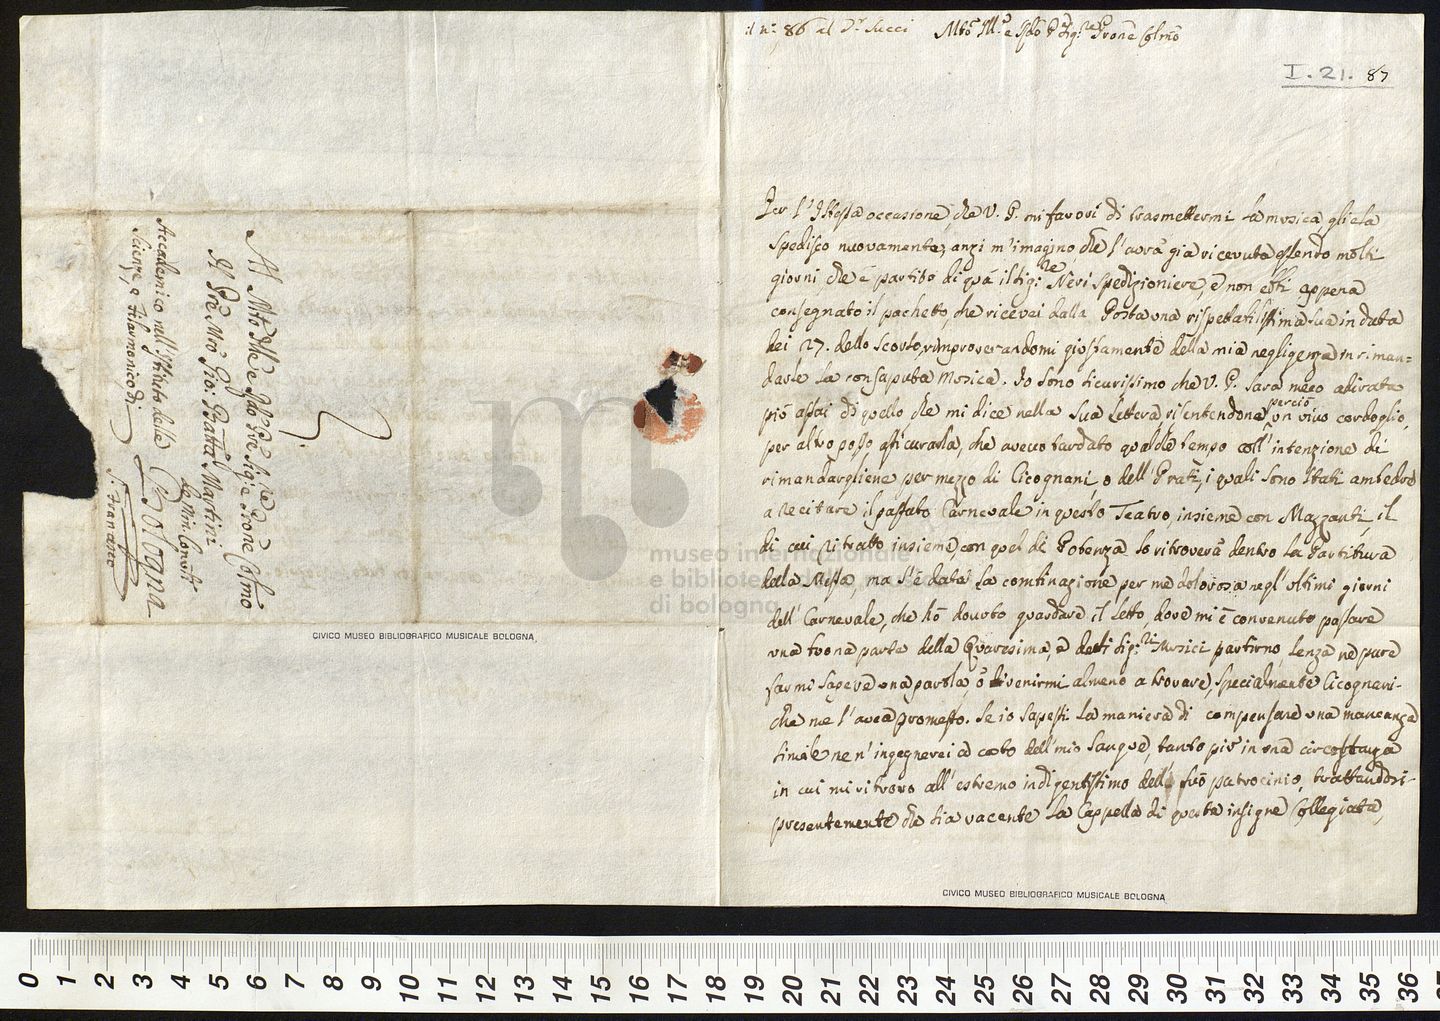 il n: 86 al Dr Succi
Mto Ill. e Rdo P Sigre Prone Colmo
I. 21. 87
Per l'istessa occasione, che V. P. mi favorì di trasmettermi la musica gliela
spedisco nuovamente, anzi m'imagino, che l'avrà già ricevuta essendo molti
giorni che è partito di quà il Sigre Neri Spedizioniere, e non ebbi appena
consegnato il pachetto, che ricevei dalla Posta una rispettatissima sua in data
dei 27. dello scorso, rimproverandomi giustamente della mia negligenza in riman=
darle la consaputa Musica. Io sono sicurissimo che V. P. sarà meco adirata
più assai di quello che mi dice nella sua lettera risentendone perciò un vivo cordoglio,
per altro posso assicurarla, che avevo tardato qualche tempo coll'intenzione di
rimandargliene per mezzo di Cicognani, o dell'Prati, i quali sono stati ambedue
a recitare il passato Carnevale in questo Teatro, insieme con Mazzanti, il
di cui ritratto insieme con quel di Potenza lo ritroverà dentro la Partitura
della Messa, ma s'è data la combinazione per me dolorosa negl'ultimi giorni
dell'Carnevale, che hò dovuto guardare il letto, dove mi è convenuto passare
una buona parte della Quaresima, e detti Sig:ri Musici partirno senza ne pure
farmi sapere una parola ò di venirmi almeno a trovare, specialmente Cicognani
che me l'avea promesso. Se io sapessi la maniera di compensare una mancanza
simile ne n'ingegnerei a costo dell'mio sangue, tanto più in una circostanza
in cui mi ritrovo all'estremo indigentissimo dell suo patrocinio, trattandosi
presentemente che sia vacente la Cappella di questa insigne Collegiata,
CIVICO MUSEO BIBLIOGRAFICO MUSICALE BOLOGNA
Al Mto Ill e Rdo P Pre Sige Prone Colmo
Il Pre Mro Gio: Batta Martini
de Min Conv.ti
Accademico nell'Istituto delle
Scienze, e Filarmonico, di
Bologna
S. Francesco
CIVICO MUSEO BIBLIOGRAFICO MUSICALE BOLOGNA
museo internazionale
e biblioteca della musica
di bologna
0 1 2 3 4 5 6 7 8 9 10 11 12 13 14 15 16 17 18 19 20 21 22 23 24 25 26 27 28 29 30 31 32 33 34 35 36 37